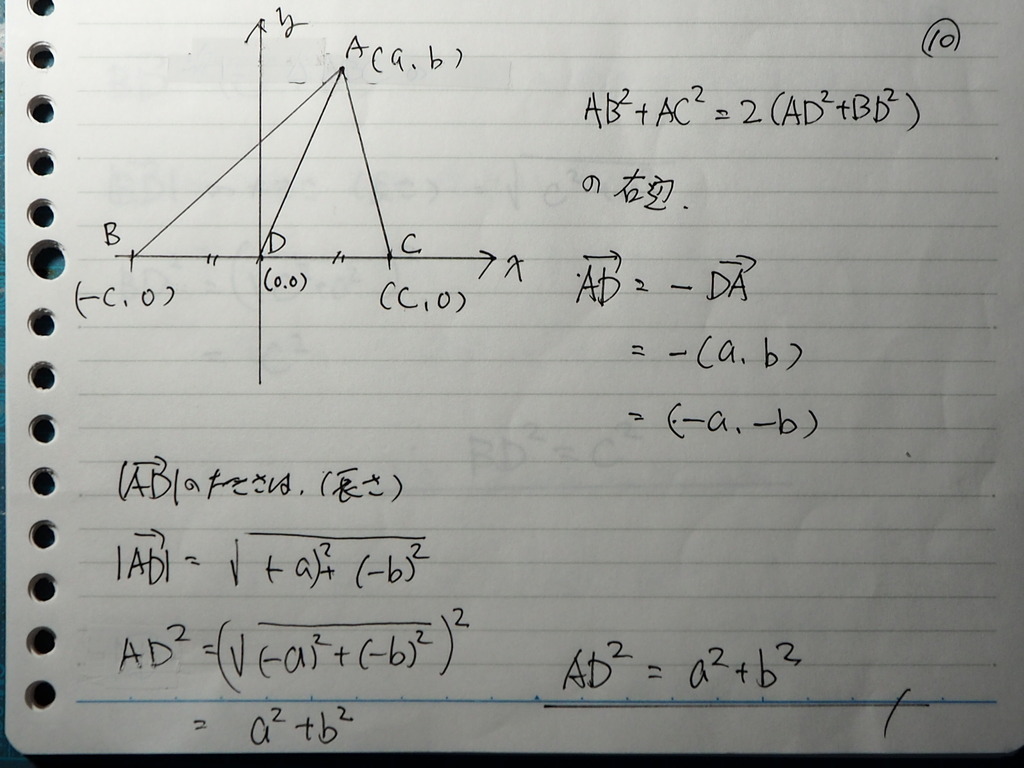 ⑩
y
A(a, b)
B
D
C
x
(-c, 0)
(0,0)
(c, 0)
AB²+AC²=2(AD²+BD²)
の右辺.
→AD = -→DA
= -(a, b)
= (-a, -b)
|→AD|の大きさは,(長さ)
|→AD| = √(-a)²+(-b)²
AD² =(√(-a)²+(-b)²)²
= a²+b²
AD² = a²+b²